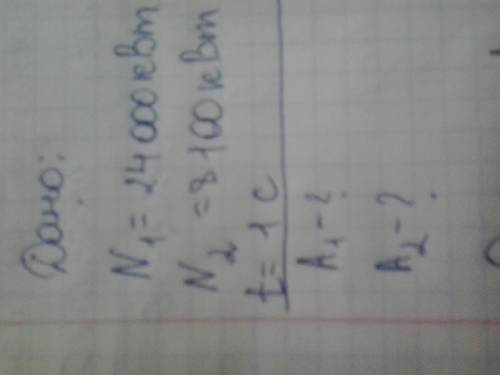 Дано:
N1 = 24 000 квт
N2 = 8 100 квт
t = 1 с
A1 - ?
A2 - ?